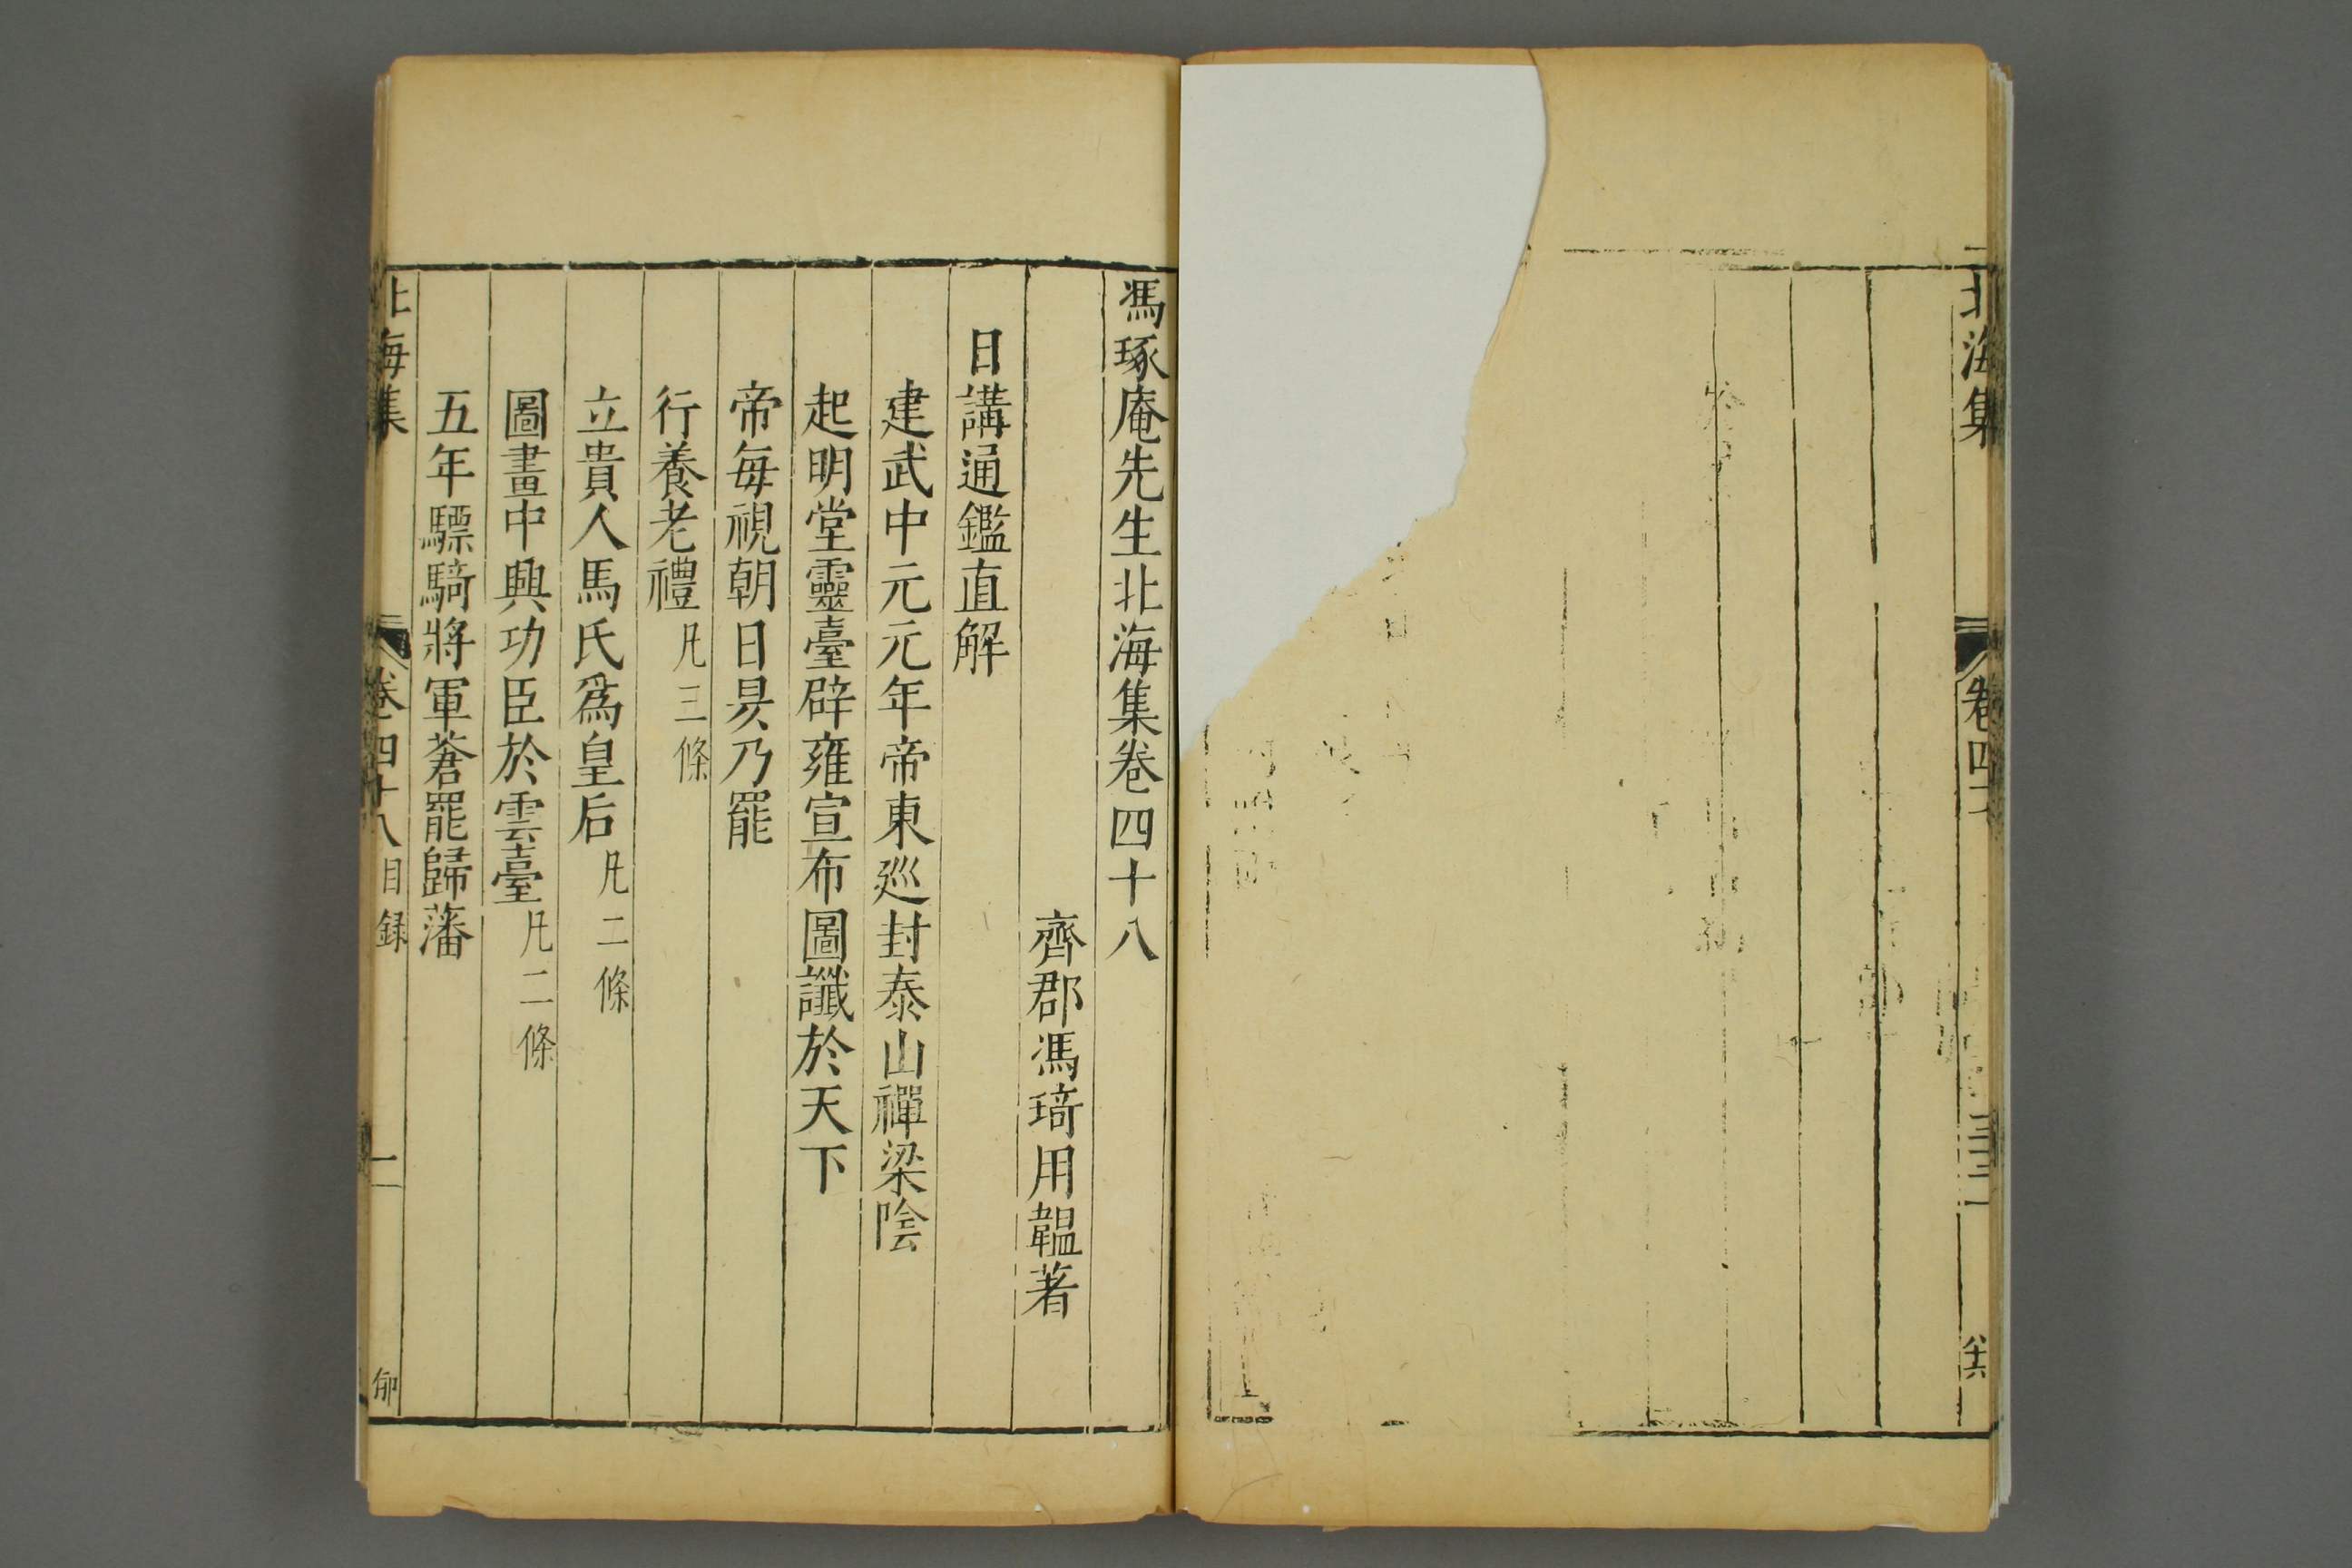 北海集
卷四十
馮琢庵先生北海集卷四十八
齊郡馮琦用韞著
日講通鑑直解
建武中元元年帝東巡封泰山禪梁陰
起明堂靈臺辟雍宣布圖讖於天下
帝每視朝日昃乃罷
行養老禮凡三條
立貴人馬氏爲皇后凡二條
圖畫中興功臣於雲臺凡二條
五年驃騎將軍蒼罷歸藩
北海集
卷四十八目録
一